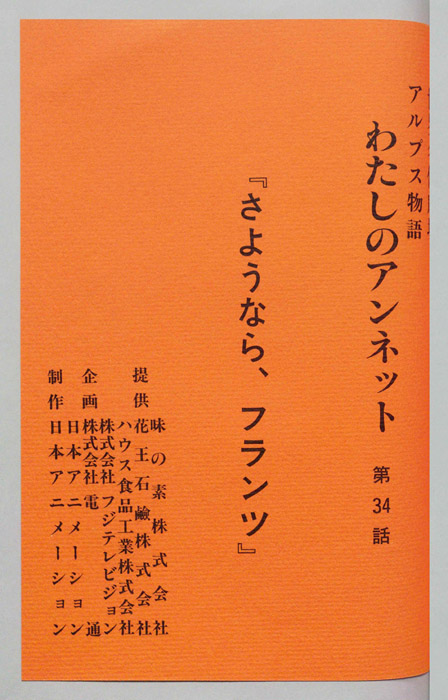 アルプス物語
わたしのアンネット 第34話
『さようなら、フランツ』
提供 味の素株式会社
花王石鹸株式会社
ハウス食品工業株式会社
企画 株式会社フジテレビジョン
株式会社電通
日本アニメーション
制作 日本アニメーション